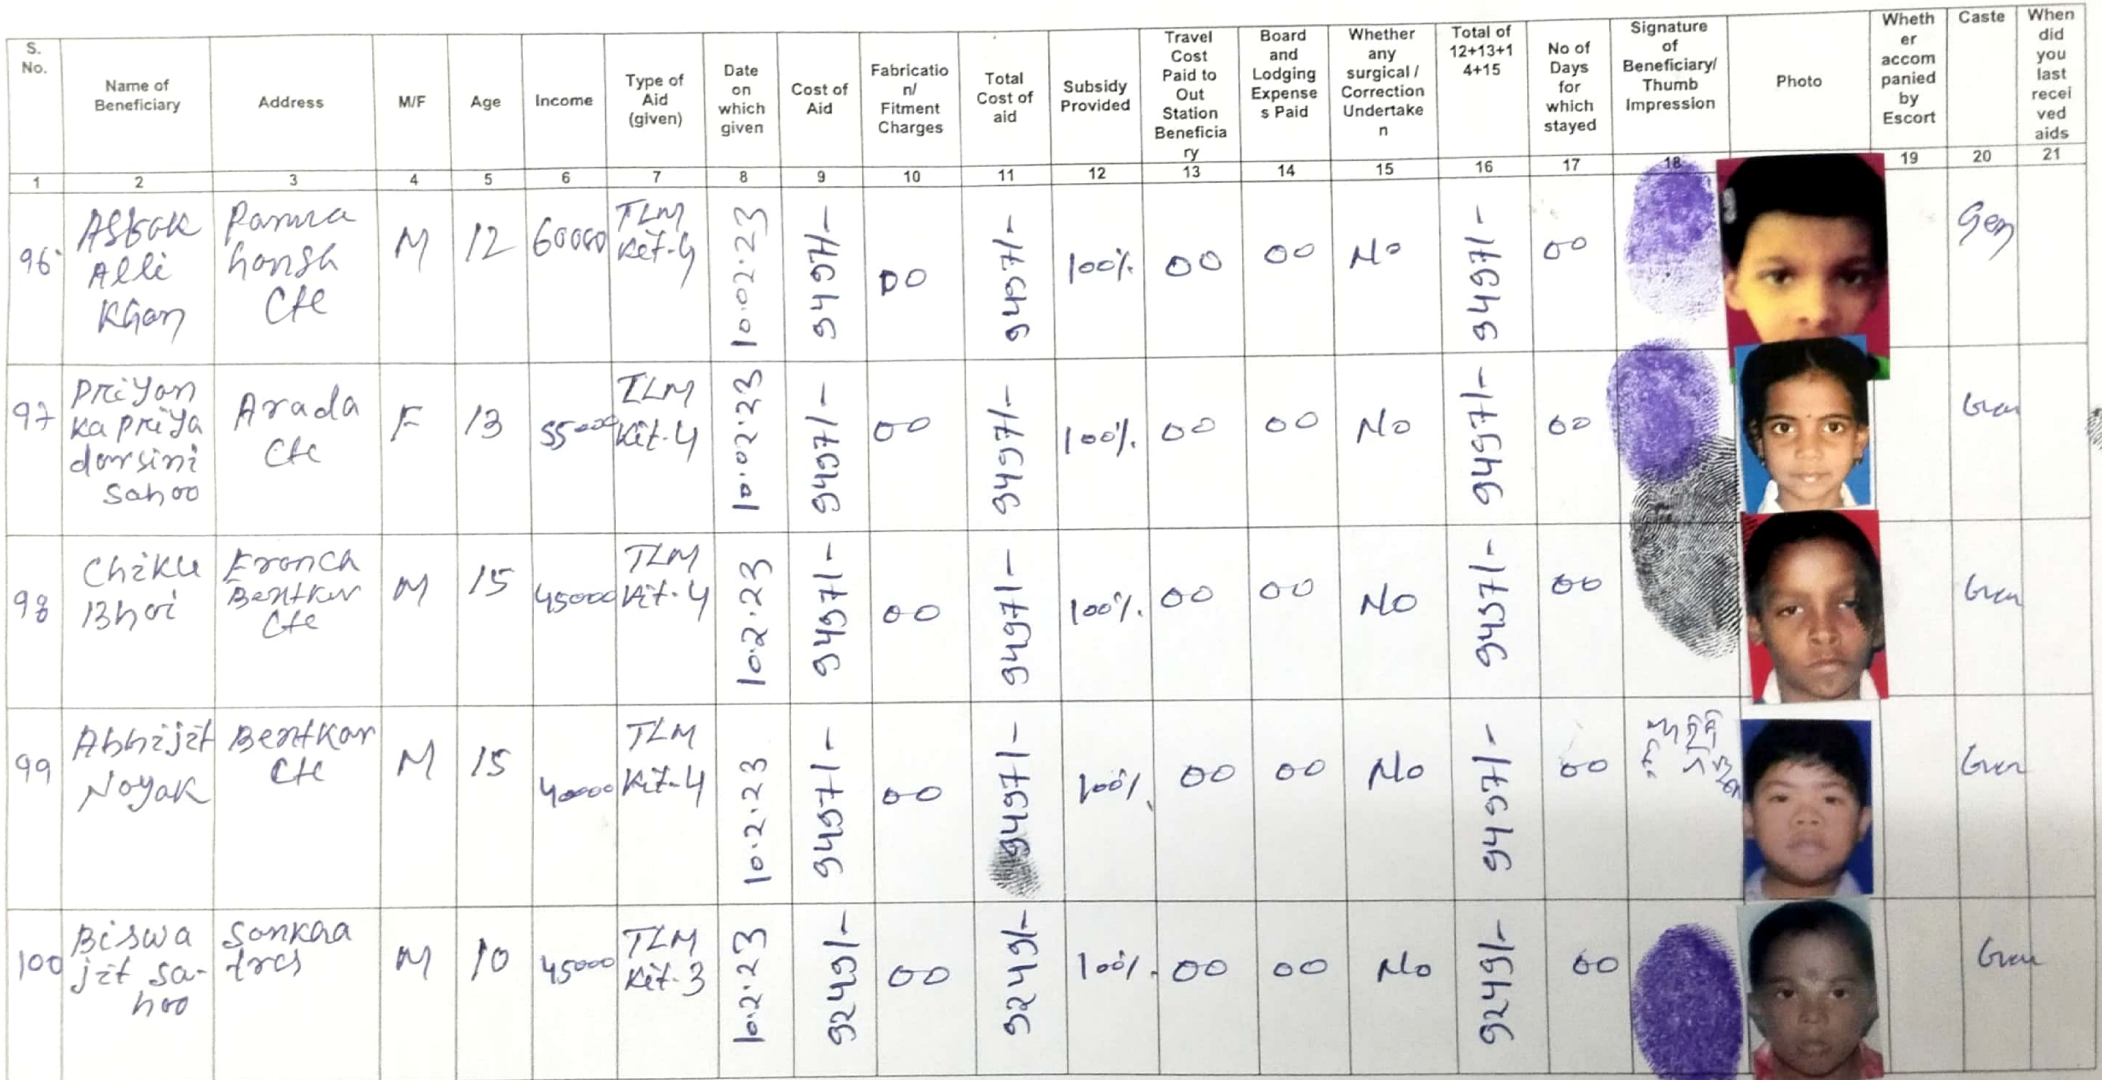 S. No. Name of Beneficiary Address M/F Age Income Type of Aid (given) Date on which given Cost of Aid Fabricatio n/ Fitment Charges Total Cost of aid Subsidy Provided Travel Cost Paid to Out Station Beneficia ry Board and Lodging Expense s Paid Whether any surgical / Correction Undertake n Total of 12+13+1 4+15 No of Days for which stayed Signature of Beneficiary/ Thumb Impression Photo Wheth er accom panied by Escort Caste When did you last recei ved aids
1 2 3 4 5 6 7 8 9 10 11 12 13 14 15 16 17 18 19 20 21
96 Asfak Alli Khan Cte M 12 60000 TLM Kit-4 10.02.23 9497/- 00 9497/- 100% 00 00 No 9497/- 00 Gen
97 Priyan ka priya darsini Sahoo Arada Cte F 13 55000 TLM Kit-4 10.02.23 9497/- 00 9497/- 100% 00 00 No 9497/- 00 Gen
98 Chiku Bhoi Erancha Bentkar Cte M 15 45000 TLM Kit-4 10.2.23 9497/- 00 9497/- 100% 00 00 No 9497/- 00 Gen
99 Abhijit Nayak Bentkar Cte M 15 40000 TLM Kit-4 10.2.23 9497/- 00 9497/- 100% 00 00 No 9497/- 00 Gen
100 Biswa jit Sa- hoo M 10 45000 TLM Kit-3 10.2.23 9249/- 00 9249/- 100% 00 00 No 9249/- 00 Gen